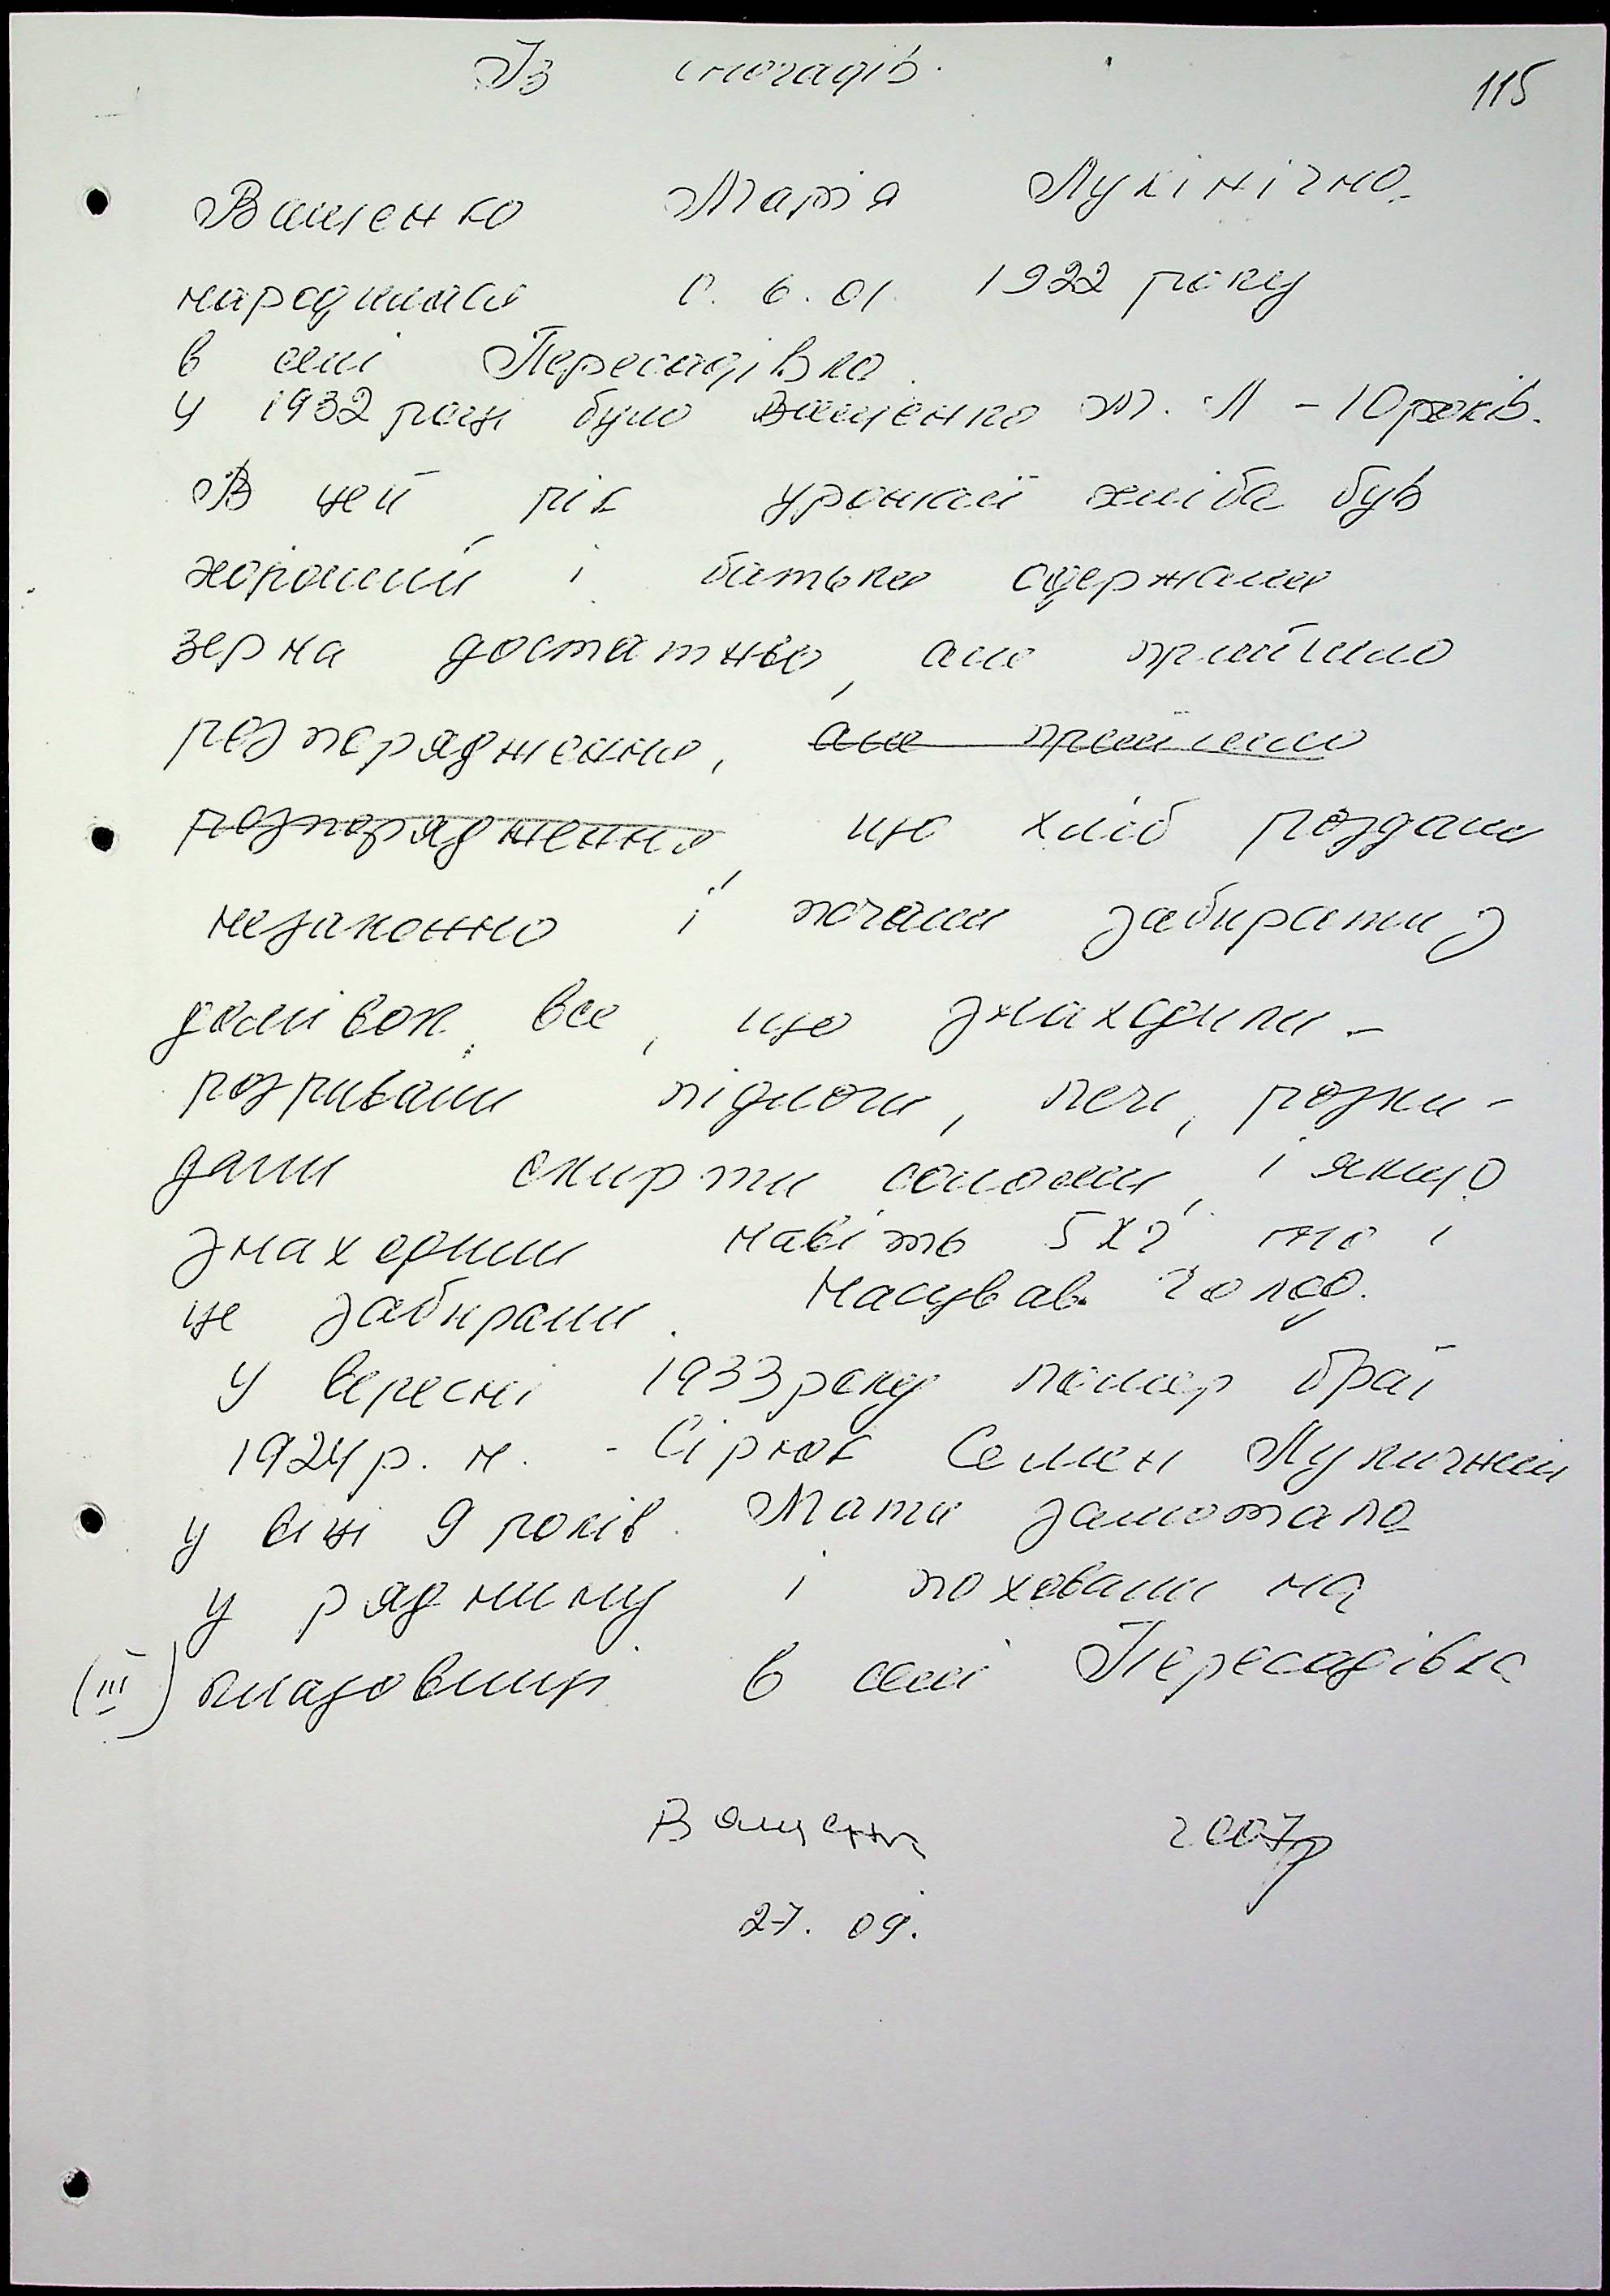 Із спогадів.
115
Ващенко Марія Лукінічна
народилася 6.01 1922 року
в селі Пересадівка.
У 1932 році було Ващенко М. Л – 10 років.
В цей рік урожай хліба був
хороший і батьки одержали
зерна достатньо, але прийшло
розпорядження, але прийшло
розпорядження, що хліб роздали
незаконно і почали забирати з
домівок все, що знаходили –
розривали підлоги, печі, розки-
дали скирти соломи, і якщо
знаходили навіть 5 кг то і
це забирали. Насував голод.
У вересні 1933 року помер брат
1924 р. н. - Сірюк Семен Лукичний
у віці 9 років. Мати замотала
у ряднину і поховали на
(III) кладовищі в селі Пересадівка
Ващенко 2007р
27. 09.